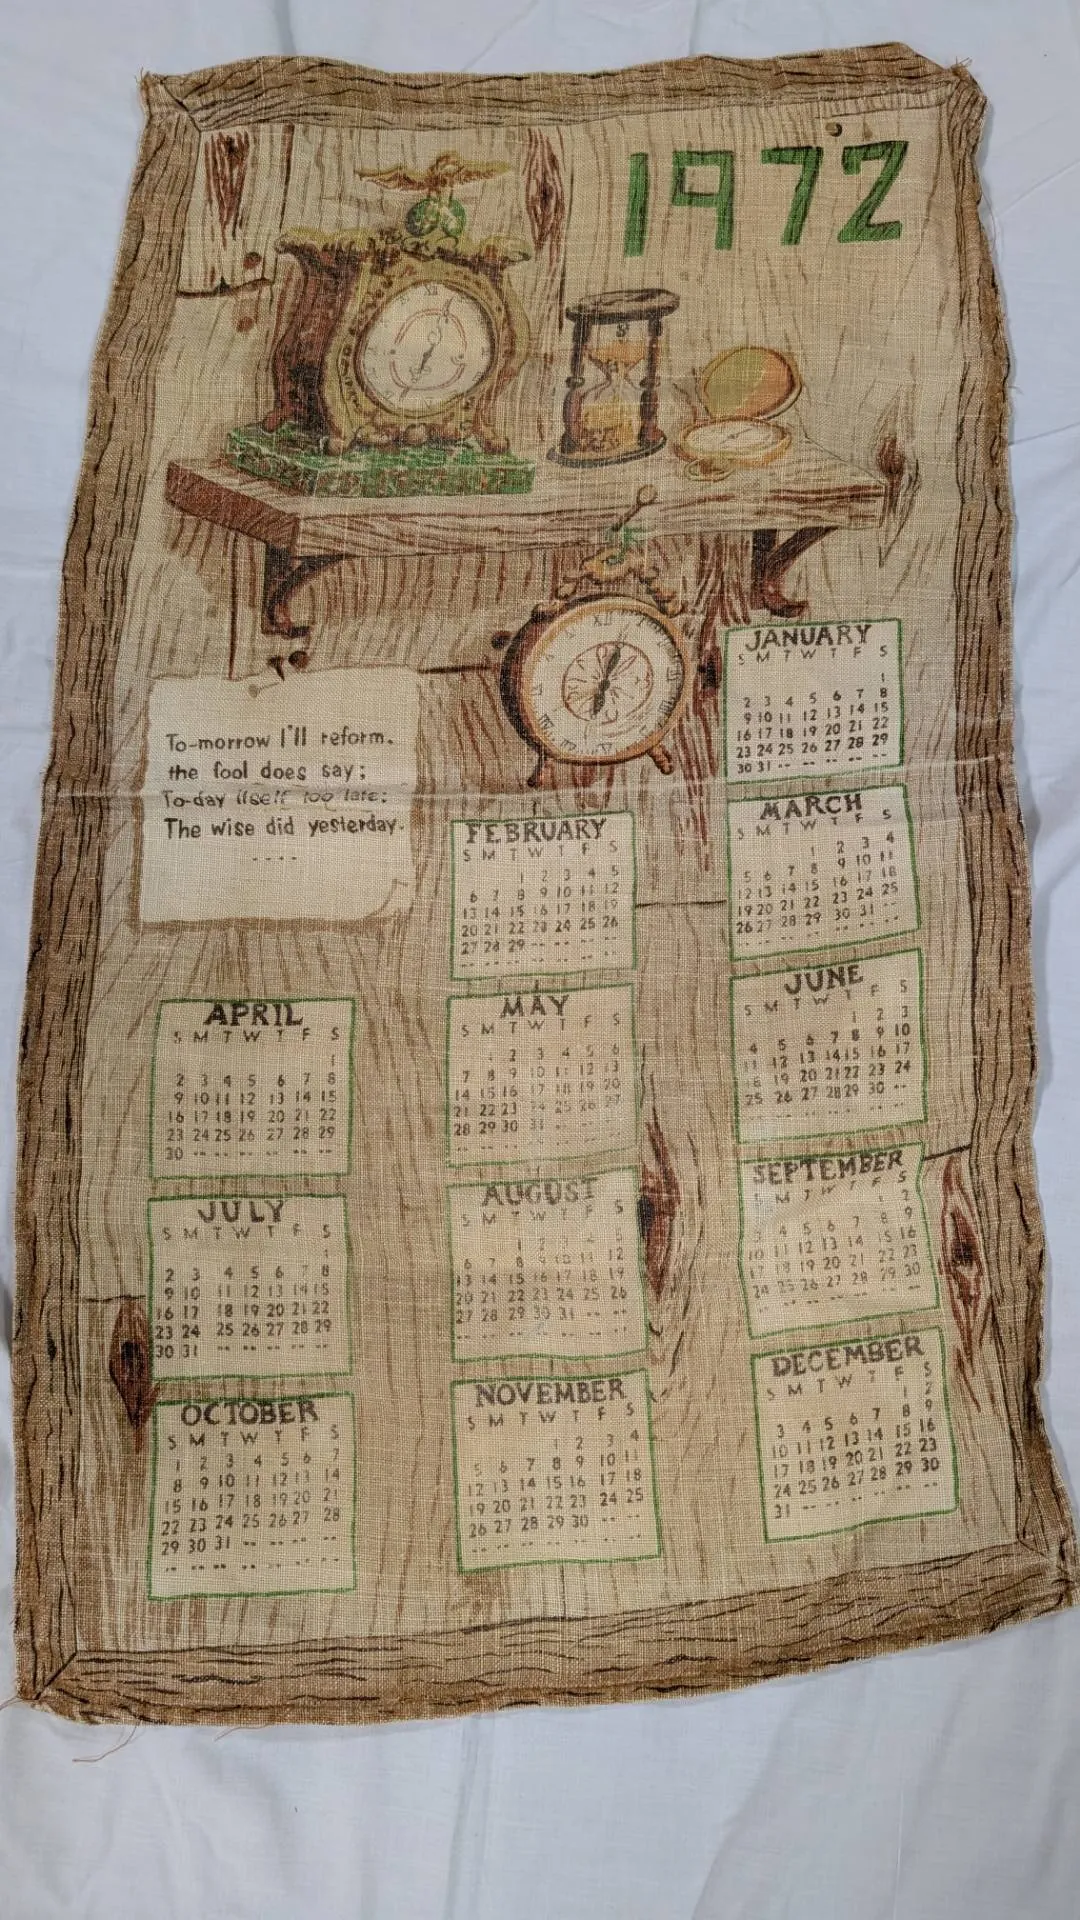 1972
XII
XII
JANUARY
S M T W T F S
1
2 3 4 5 6 7 8
9 10 11 12 13 14 15
16 17 18 19 20 21 22
23 24 25 26 27 28 29
30 31 -- -- -- -- --
To-morrow I'll reform.
the fool does say;
To-day itself too late;
The wise did yesterday.
----
FEBRUARY
S M T W T F S
1 2 3 4 5
6 7 8 9 10 11 12
13 14 15 16 17 18 19
20 21 22 23 24 25 26
27 28 29 -- -- -- --
-- -- -- -- -- -- --
MARCH
S M T W T F S
1 2 3 4
5 6 7 8 9 10 11
12 13 14 15 16 17 18
19 20 21 22 23 24 25
26 27 28 29 30 31 --
-- -- -- -- -- -- --
APRIL
S M T W T F S
1
2 3 4 5 6 7 8
9 10 11 12 13 14 15
16 17 18 19 20 21 22
23 24 25 26 27 28 29
30 -- -- -- -- -- --
MAY
S M T W T F S
1 2 3 4 5 6
7 8 9 10 11 12 13
14 15 16 17 18 19 20
21 22 23 24 25 26 27
28 29 30 31 -- -- --
-- -- -- -- -- -- --
JUNE
S M T W T F S
1 2 3
4 5 6 7 8 9 10
11 12 13 14 15 16 17
18 19 20 21 22 23 24
25 26 27 28 29 30 --
-- -- -- -- -- -- --
JULY
S M T W T F S
1
2 3 4 5 6 7 8
9 10 11 12 13 14 15
16 17 18 19 20 21 22
23 24 25 26 27 28 29
30 31 -- -- -- -- --
AUGUST
S M T W T F S
1 2 3 4 5
6 7 8 9 10 11 12
13 14 15 16 17 18 19
20 21 22 23 24 25 26
27 28 29 30 31 -- --
-- -- -- -- -- -- --
SEPTEMBER
S M T W T F S
1 2
3 4 5 6 7 8 9
10 11 12 13 14 15 16
17 18 19 20 21 22 23
24 25 26 27 28 29 30
-- -- -- -- -- -- --
OCTOBER
S M T W T F S
1 2 3 4 5 6 7
8 9 10 11 12 13 14
15 16 17 18 19 20 21
22 23 24 25 26 27 28
29 30 31 -- -- -- --
-- -- -- -- -- -- --
NOVEMBER
S M T W T F S
1 2 3 4
5 6 7 8 9 10 11
12 13 14 15 16 17 18
19 20 21 22 23 24 25
26 27 28 29 30 -- --
-- -- -- -- -- -- --
DECEMBER
S M T W T F S
1 2
3 4 5 6 7 8 9
10 11 12 13 14 15 16
17 18 19 20 21 22 23
24 25 26 27 28 29 30
31 -- -- -- -- -- --